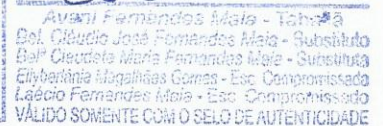 Avani Fernandes Maia - Tabeliã
Bel. Cláudio José Fernandes Maia - Substituto
Belª Claudete Maria Fernandes Maia - Substituta
Magalhães Gomes - Esc. Compromissado
Laécio Fernandes Maia - Esc. Compromissado
VÁLIDO SOMENTE COM O SELO DE AUTENTICIDADE